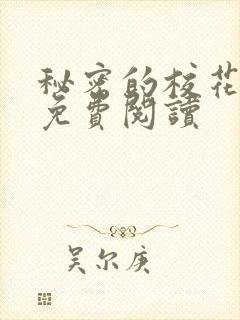 秘密的校花
免費閱讀
吴尔庚